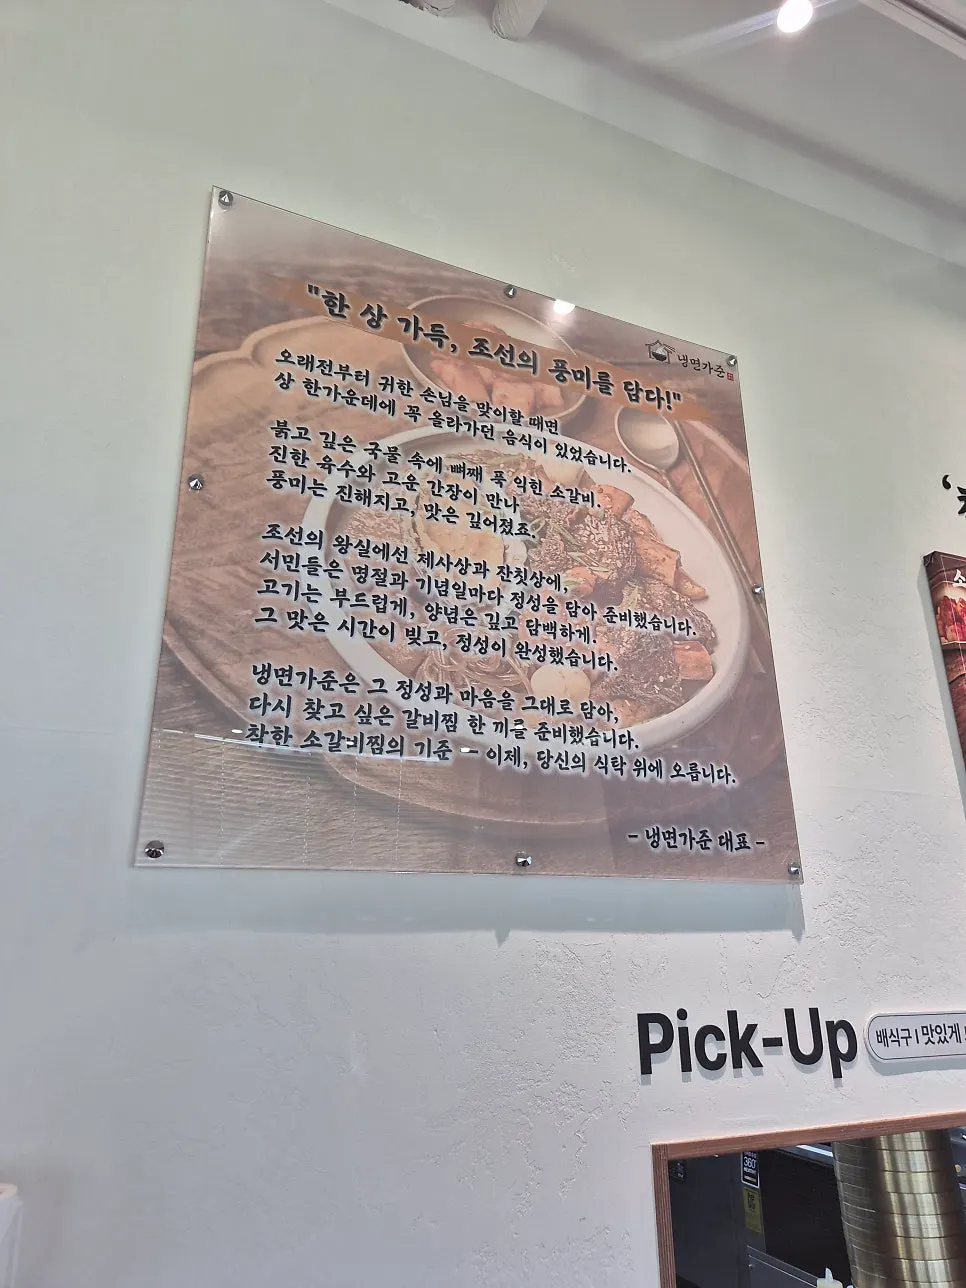 "한 상 가득, 조선의 풍미를 담다!"
냉면가준
오래전부터 귀한 손님을 맞이할 때면
상 한가운데에 꼭 올라가던 음식이 있었습니다.
붉고 깊은 국물 속에 뼈째 푹 익힌 소갈비.
진한 육수와 고운 간장이 만나
풍미는 진해지고, 맛은 깊어졌죠.
조선의 왕실에선 제사상과 잔칫상에,
서민들은 명절과 기념일마다 정성을 담아 준비했습니다.
고기는 부드럽게, 양념은 깊고 담백하게.
그 맛은 시간이 빚고, 정성이 완성했습니다.
냉면가준은 그 정성과 마음을 그대로 담아,
다시 찾고 싶은 갈비찜 한 끼를 준비했습니다.
착한 소갈비찜의 기준 – 이제, 당신의 식탁 위에 오릅니다.
- 냉면가준 대표 -
Pick-Up
배식구 I 맛있게
360°